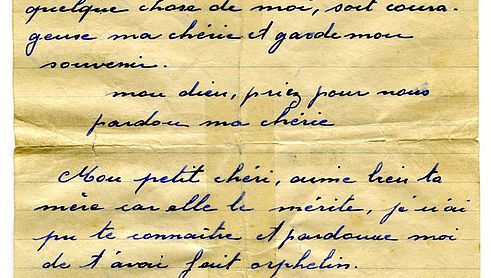 quelque chose de moi, soit coura-
geuse ma chérie et garde mon
souvenir.
mon dieu, priez pour nous
pardon ma chérie
Mon petit chéri, aime bien ta
mère car elle le mérite, je n'ai
pu te connaître et pardonne moi
de t'avoir fait orphelin.